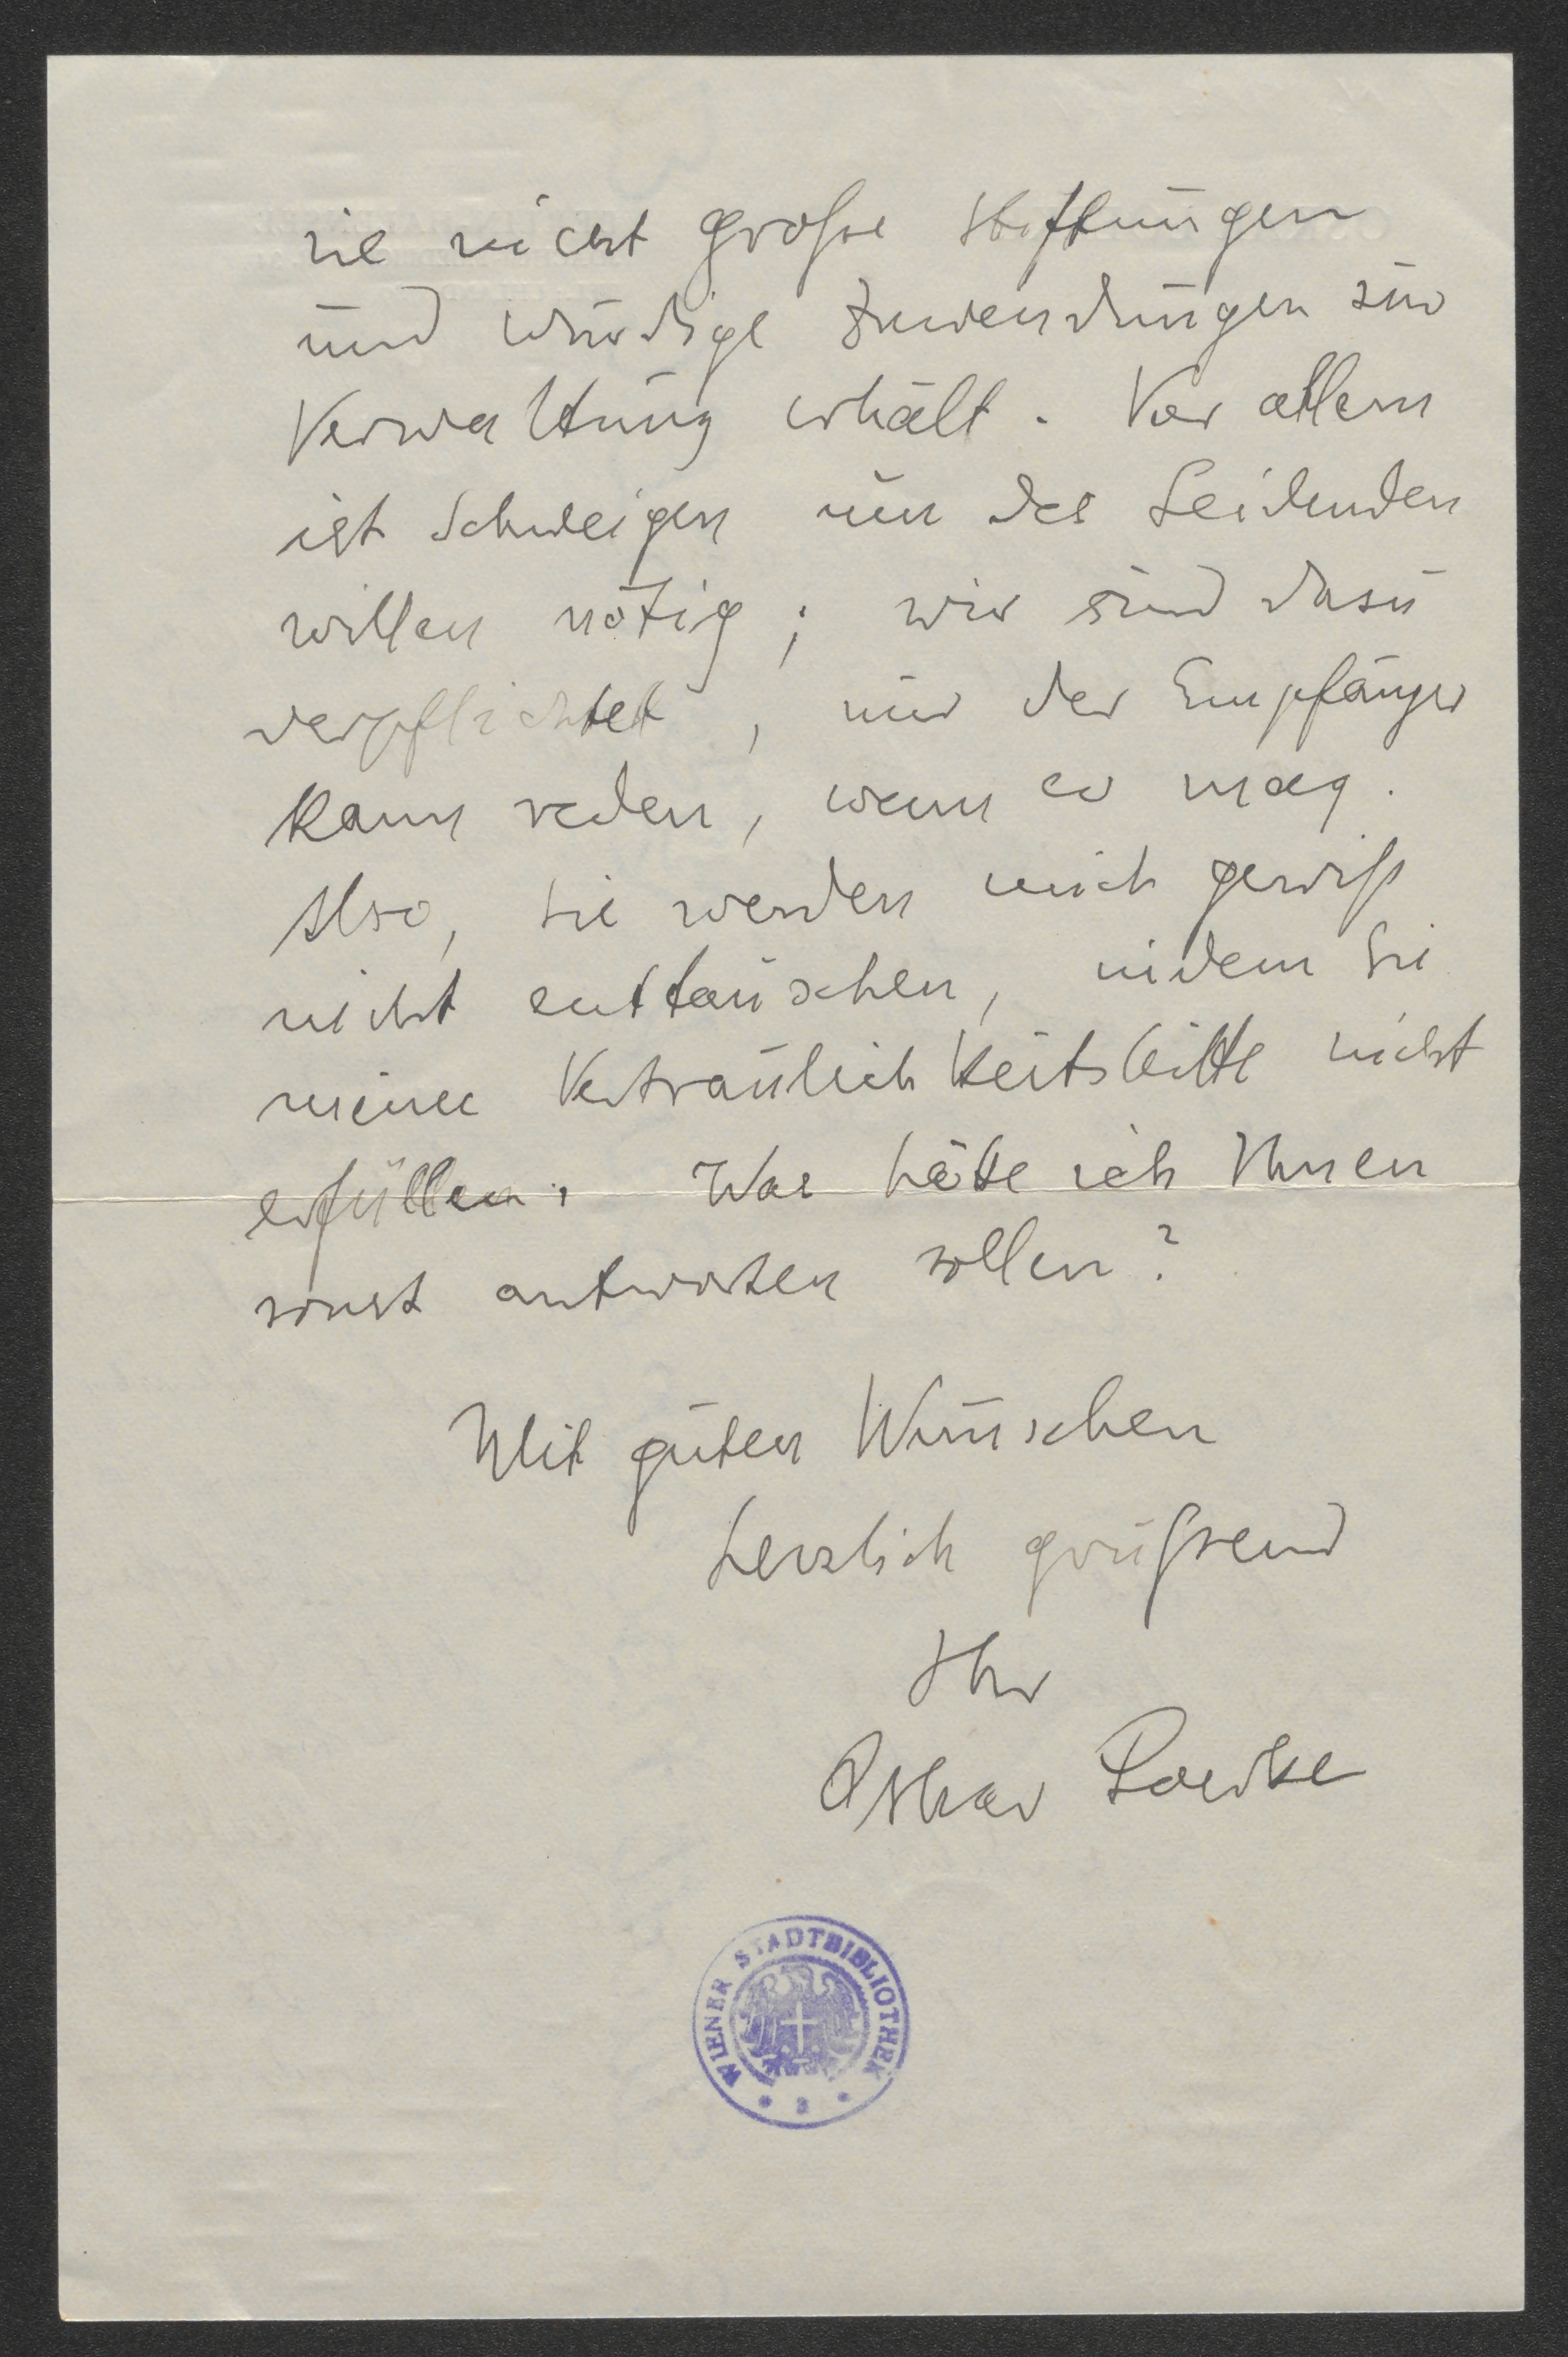 sie nicht große Stiftungen
und würdige Zuwendungen zur
Verwaltung erhält. Vor allem
ist Schweigen um des Leidenden
willen nötig; wir sind dazu
verpflichtet, nur der Empfänger
kann reden, wenn er mag.
Also, Sie werden mich gewiß
nicht enttäuschen, indem Sie
meine Vertraulichkeitsbitte nicht
erfüllen. Was hätte ich Ihnen
sonst antworten sollen?
Mit guten Wünschen
herzlich grüßend
Ihr
Oskar Loerke
WIENER STADTBIBLIOTHEK